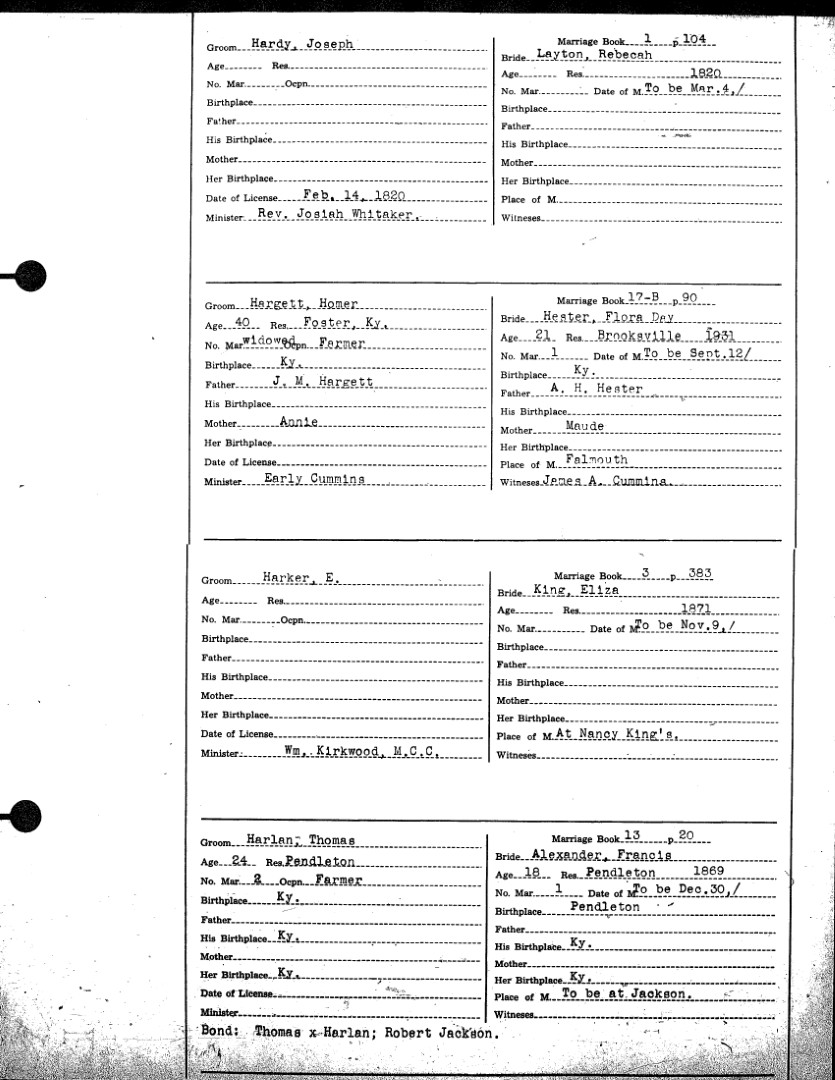 Groom Hardy, Joseph
Age Res.
No. Mar. Ocpn.
Birthplace
Father
His Birthplace
Mother
Her Birthplace
Date of License Feb. 14, 1820
Minister Rev. Josiah Whitaker.
Marriage Book 1 p. 104
Bride Layton, Rebecah
Age Res. 1820
No. Mar. Date of M. To be Mar.4,/
Birthplace
Father
His Birthplace
Mother
Her Birthplace
Place of M.
Witneses
Groom Hargett, Homer
Age 40 Res. Foster, Ky.
No. Mar. widowed Ocpn. Farmer
Birthplace Ky.
Father J. M. Hargett
His Birthplace
Mother Annie
Her Birthplace
Date of License
Minister Early Cummins
Marriage Book 17-B p. 90
Bride Hester, Flora Dey
Age 21 Res. Brooksville 1931
No. Mar. 1 Date of M. To be Sept.12/
Birthplace Ky.
Father A. H. Hester
His Birthplace
Mother Maude
Her Birthplace
Place of M. Falmouth
Witneses James A. Cummins.
Groom Harker, E.
Age Res.
No. Mar. Ocpn.
Birthplace
Father
His Birthplace
Mother
Her Birthplace
Date of License
Minister Wm. Kirkwood, M.C.C.
Marriage Book 3 p. 383
Bride King, Eliza
Age Res. 1871
No. Mar. Date of M. To be Nov.9,/
Birthplace
Father
His Birthplace
Mother
Her Birthplace
Place of M. At Nancy King's.
Witneses
Groom Harlan, Thomas
Age 24 Res. Pendleton
No. Mar. 2 Ocpn. Farmer
Birthplace Ky.
Father
His Birthplace Ky.
Mother
Her Birthplace Ky.
Date of License
Minister
Marriage Book 13 p. 20
Bride Alexander, Francis
Age 18 Res. Pendleton 1869
No. Mar. 1 Date of M. To be Dec.30,/
Birthplace Pendleton
Father
His Birthplace Ky.
Mother
Her Birthplace Ky.
Place of M. To be at Jackson.
Witneses
Bond: Thomas x Harlan; Robert Jackson.